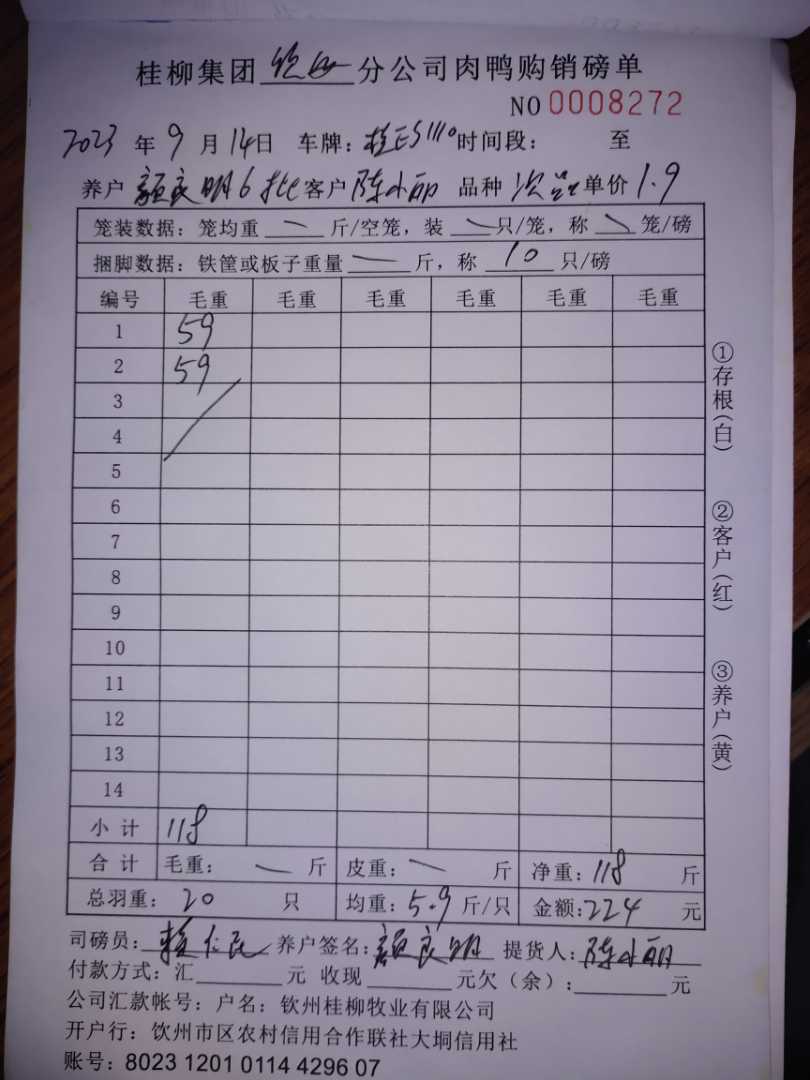 桂柳集团钦州分公司肉鸭购销磅单
NO 0008272
2023年9月14日 车牌：桂 时间段： 至
养户 颜良明6批 客户 陈小丽 品种 次 单价 1.9
笼装数据：笼均重 一 斤/空笼，装 一 只/笼，称 一 笼/磅
捆脚数据：铁筐或板子重量 一 斤，称 10 只/磅
编号 毛重 毛重 毛重 毛重 毛重 毛重
1 59
2 59
3
4
5
6
7
8
9
10
11
12
13
14
小计 118
合计 毛重： 一 斤 皮重： 一 斤 净重：118 斤
总羽重： 20 只 均重：5.9 斤/只 金额：224 元
司磅员： 养户签名：颜良明 提货人：陈小丽
付款方式：汇 元 收现 元欠（余）： 元
公司汇款帐号：户名：钦州桂柳牧业有限公司
开户行：钦州市区农村信用合作联社大垌信用社
账号：8023 1201 0114 4296 07
①存根（白）
②客户（红）
③养户（黄）